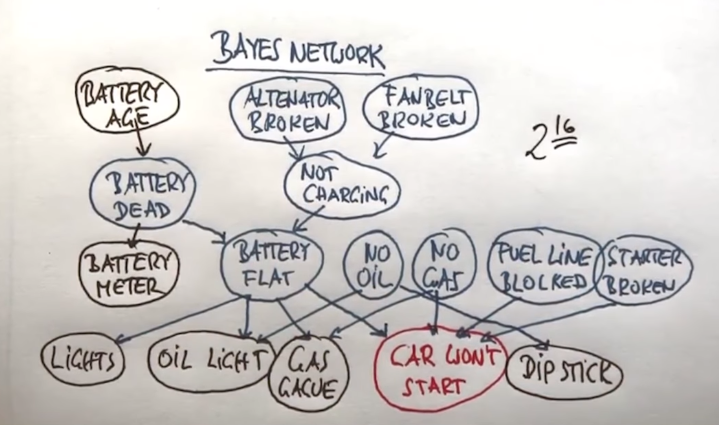 BAYES NETWORK
BATTERY
AGE
ALTENATOR
BROKEN
FANBELT
BROKEN
2^16
BATTERY
DEAD
NOT
CHARGING
BATTERY
METER
BATTERY
FLAT
NO
OIL
NO
GAS
FUEL LINE
BLOCKED
STARTER
BROKEN
LIGHTS
OIL LIGHT
GAS
GAGUE
CAR WON'T
START
DIP STICK